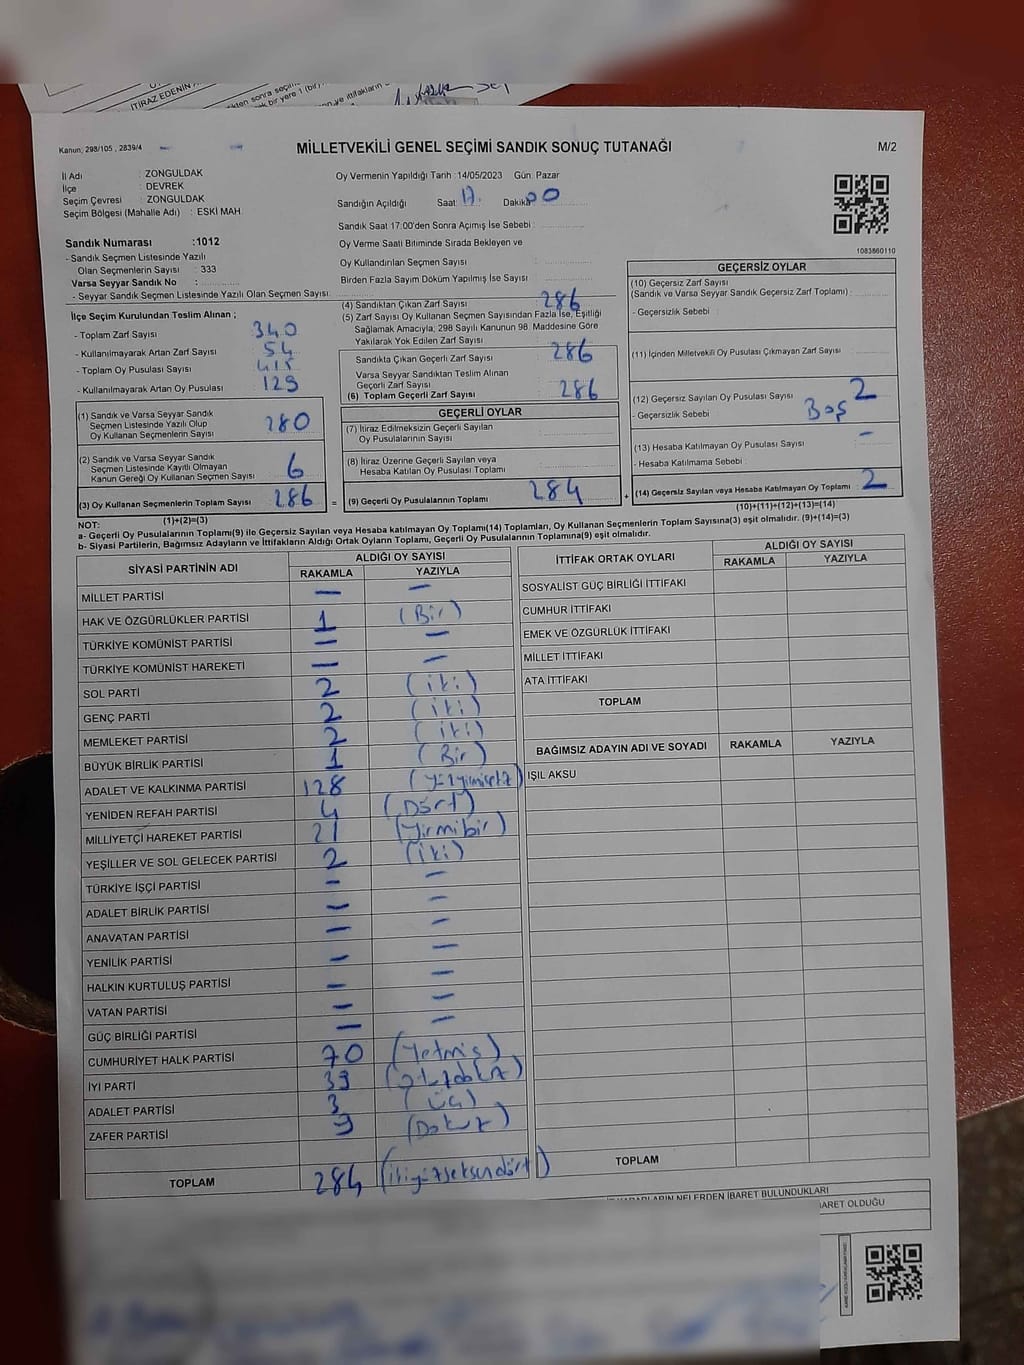 İTİRAZ EDENİN
Kanun; 298/105 , 2839/4
MİLLETVEKİLİ GENEL SEÇİMİ SANDIK SONUÇ TUTANAĞI
M/2
İl Adı : ZONGULDAK
İlçe : DEVREK
Seçim Çevresi : ZONGULDAK
Seçim Bölgesi (Mahalle Adı) : ESKİ MAH.
Oy Vermenin Yapıldığı Tarih :14/05/2023 Gün: Pazar
Sandığın Açıldığı Saat: 17 Dakika: 00
Sandık Saat 17:00'den Sonra Açımış İse Sebebi :
Oy Verme Saati Bitiminde Sırada Bekleyen ve
Oy Kullandırılan Seçmen Sayısı :
Birden Fazla Sayım Döküm Yapılmış İse Sayısı :
1083860110
Sandık Numarası :1012
- Sandık Seçmen Listesinde Yazılı
Olan Seçmenlerin Sayısı : 333
Varsa Seyyar Sandık No :
- Seyyar Sandık Seçmen Listesinde Yazılı Olan Seçmen Sayısı:
İlçe Seçim Kurulundan Teslim Alınan ;
- Toplam Zarf Sayısı : 340
- Kullanılmayarak Artan Zarf Sayısı : 54
- Toplam Oy Pusulası Sayısı : 415
- Kullanılmayarak Artan Oy Pusulası : 129
(1) Sandık ve Varsa Seyyar Sandık
Seçmen Listesinde Yazılı Olup
Oy Kullanan Seçmenlerin Sayısı : 280
(2) Sandık ve Varsa Seyyar Sandık
Seçmen Listesinde Kayıtlı Olmayan
Kanun Gereği Oy Kullanan Seçmen Sayısı : 6
(3) Oy Kullanan Seçmenlerin Toplam Sayısı : 286
(1)+(2)=(3)
(4) Sandıktan Çıkan Zarf Sayısı : 286
(5) Zarf Sayısı Oy Kullanan Seçmen Sayısından Fazla İse, Eşitliği
Sağlamak Amacıyla, 298 Sayılı Kanunun 98. Maddesine Göre
Yakılarak Yok Edilen Zarf Sayısı :
Sandıkta Çıkan Geçerli Zarf Sayısı : 286
Varsa Seyyar Sandıktan Teslim Alınan
Geçerli Zarf Sayısı :
(6) Toplam Geçerli Zarf Sayısı : 286
GEÇERLİ OYLAR
(7) İtiraz Edilmeksizin Geçerli Sayılan
Oy Pusulalarının Sayısı :
(8) İtiraz Üzerine Geçerli Sayılan veya
Hesaba Katılan Oy Pusulası Toplamı :
= (9) Geçerli Oy Pusulalarının Toplamı : 284 +
GEÇERSİZ OYLAR
(10) Geçersiz Zarf Sayısı
(Sandık ve Varsa Seyyar Sandık Geçersiz Zarf Toplamı) :
- Geçersizlik Sebebi :
(11) İçinden Milletvekili Oy Pusulası Çıkmayan Zarf Sayısı :
(12) Geçersiz Sayılan Oy Pusulası Sayısı : 2
- Geçersizlik Sebebi : Boş
(13) Hesaba Katılmayan Oy Pusulası Sayısı : -
- Hesaba Katılmama Sebebi :
(14) Geçersiz Sayılan veya Hesaba Katılmayan Oy Toplamı : 2
(10)+(11)+(12)+(13)=(14)
NOT:
a- Geçerli Oy Pusulalarının Toplamı(9) ile Geçersiz Sayılan veya Hesaba katılmayan Oy Toplamı(14) Toplamları, Oy Kullanan Seçmenlerin Toplam Sayısına(3) eşit olmalıdır. (9)+(14)=(3)
b- Siyasi Partilerin, Bağımsız Adayların ve İttifakların Aldığı Ortak Oyların Toplamı, Geçerli Oy Pusulalarının Toplamına(9) eşit olmalıdır.
SİYASİ PARTİNİN ADI ALDIĞI OY SAYISI
RAKAMLA YAZIYLA
MİLLET PARTİSİ — —
HAK VE ÖZGÜRLÜKLER PARTİSİ 1 (Bir)
TÜRKİYE KOMÜNİST PARTİSİ — —
TÜRKİYE KOMÜNİST HAREKETİ — —
SOL PARTİ 2 (iki)
GENÇ PARTİ 2 (iki)
MEMLEKET PARTİSİ 2 (iki)
BÜYÜK BİRLİK PARTİSİ 1 (Bir)
ADALET VE KALKINMA PARTİSİ 128 (yüzyirmisekiz)
YENİDEN REFAH PARTİSİ 4 (Dört)
MİLLİYETÇİ HAREKET PARTİSİ 21 (Yirmibir)
YEŞİLLER VE SOL GELECEK PARTİSİ 2 (iki)
TÜRKİYE İŞÇİ PARTİSİ — —
ADALET BİRLİK PARTİSİ — —
ANAVATAN PARTİSİ — —
YENİLİK PARTİSİ — —
HALKIN KURTULUŞ PARTİSİ — —
VATAN PARTİSİ — —
GÜÇ BİRLİĞİ PARTİSİ — —
CUMHURİYET HALK PARTİSİ 70 (Yetmiş)
İYİ PARTİ 39 (otuzdokuz)
ADALET PARTİSİ 3 (üç)
ZAFER PARTİSİ 9 (Dokuz)
TOPLAM 284 (ikiyüzseksendört)
İTTİFAK ORTAK OYLARI ALDIĞI OY SAYISI
RAKAMLA YAZIYLA
SOSYALİST GÜÇ BİRLİĞİ İTTİFAKI
CUMHUR İTTİFAKI
EMEK VE ÖZGÜRLÜK İTTİFAKI
MİLLET İTTİFAKI
ATA İTTİFAKI
TOPLAM
BAĞIMSIZ ADAYIN ADI VE SOYADI RAKAMLA YAZIYLA
IŞIL AKSU
TOPLAM
NELERDEN İBARET BULUNDUKLARI
BARET OLDUĞU